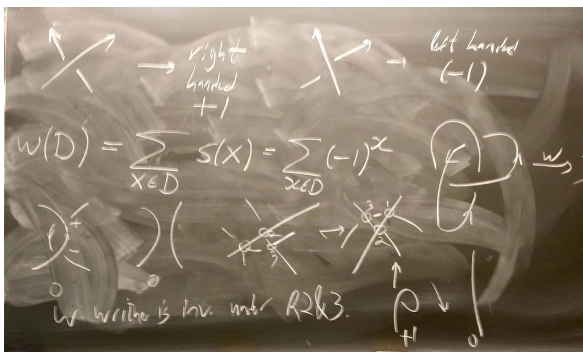 → right handed +1
→ left handed (-1)
w(D) = ∑_{X∈D} s(X) = ∑_{x∈D} (-1)^x
w →
+
-
0
3 1
2
0
w. writhe is inv. under R2&3.
+1
0